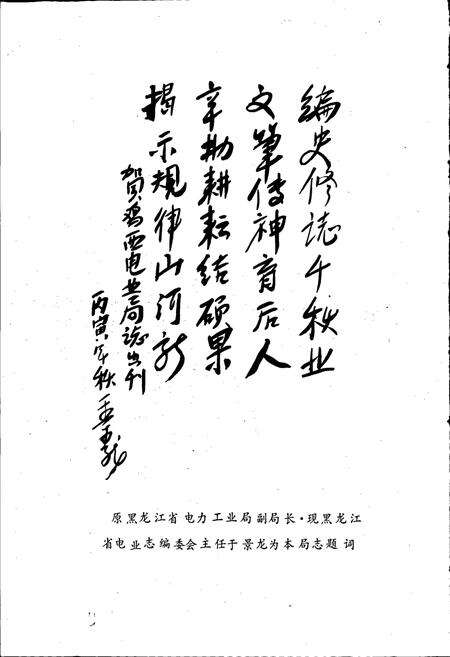 编史修誌千秋业
文笔传神育后人
辛勤耕耘结硕果
揭示规律山河新
贺鸡西电业局誌出刊
丙寅年秋
原黑龙江省电力工业局副局长·现黑龙江
省电业志编委会主任于景龙为本局志题词